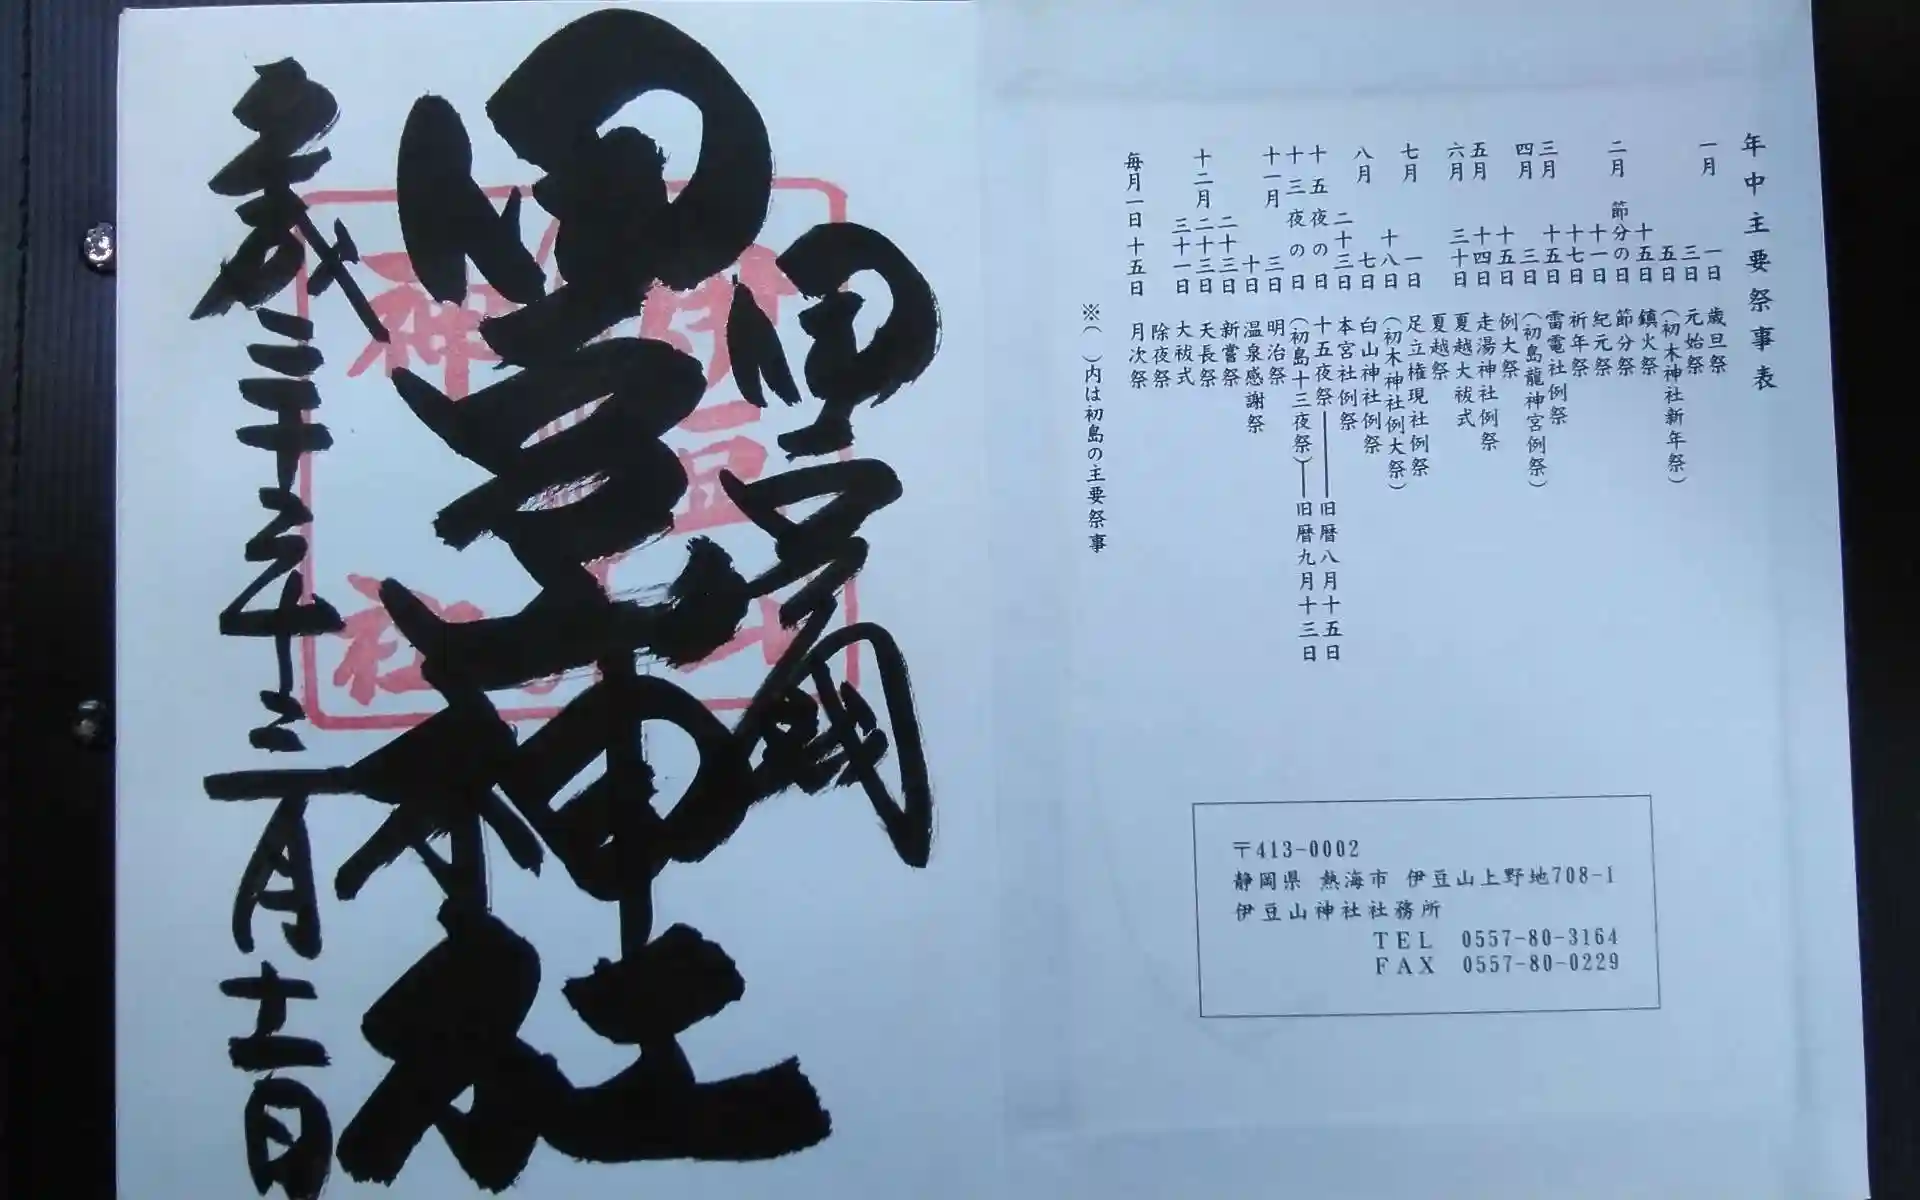 年中主要祭事表
一月 一日 歳旦祭
三日 元始祭
五日 (初木神社新年祭)
十五日 鎮火祭
二月 節分の日 節分祭
十一日 紀元祭
十七日 祈年祭
三月 十五日 雷電社例祭
四月 三日 (初島龍神宮例祭)
十五日 例大祭
五月 十四日 走湯神社例祭
六月 三十日 夏越大祓式
夏越祭
七月 一日 足立権現社例祭
十八日 (初木神社例大祭)
八月 七日 白山神社例祭
二十三日 本宮社例祭
十五夜の日 十五夜祭――旧暦八月十五日
十三夜の日 (初島十三夜祭)―旧暦九月十三日
十一月 三日 明治祭
十日 温泉感謝祭
二十三日 新嘗祭
十二月 二十三日 天長祭
三十一日 大祓式
除夜祭
毎月一日十五日 月次祭
※( )内は初島の主要祭事
〒413-0002
静岡県 熱海市 伊豆山上野地708-1
伊豆山神社社務所
TEL 0557-80-3164
FAX 0557-80-0229
伊豆神社